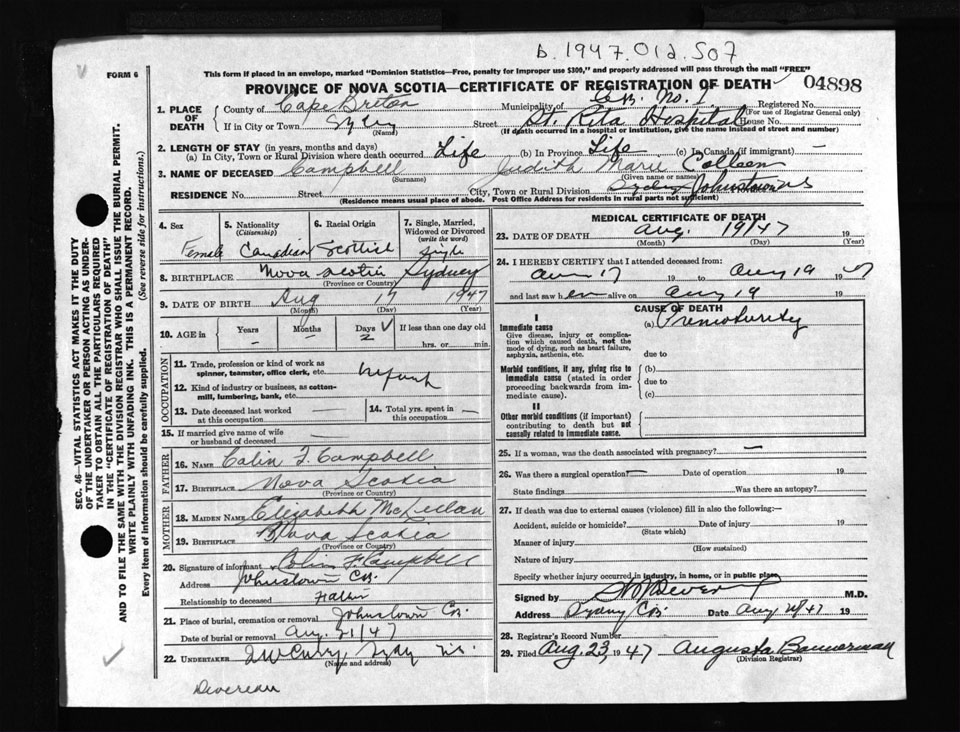 b. 1947. 012. 507
FORM 6
This form if placed in an envelope, marked "Dominion Statistics—Free, penalty for improper use $300," and properly addressed will pass through the mail "FREE"
PROVINCE OF NOVA SCOTIA—CERTIFICATE OF REGISTRATION OF DEATH
04898
1. PLACE OF DEATH
County of Cape Breton Municipality of C.B. No. 1. Registered No.
(For use of Registrar General only)
If in City or Town Sydney Street St. Rita Hospital House No.
(Name) (If death occurred in a hospital or institution, give the name instead of street and number)
2. LENGTH OF STAY (in years, months and days)
(a) In City, Town or Rural Division where death occurred Life (b) In Province Life (c) In Canada (if immigrant) —
3. NAME OF DECEASED Campbell Judith Marie Colleen
(Surname) (Given name or names)
RESIDENCE No. Street City, Town or Rural Division Sydney Johnstown
(Residence means usual place of abode. Post Office Address for residents in rural parts not sufficient)
4. Sex
Female
5. Nationality
(Citizenship)
Canadian
6. Racial Origin
Scottish
7. Single, Married, Widowed or Divorced
(write the word)
Single
8. BIRTHPLACE Nova Scotia Sydney
(Province or Country)
9. DATE OF BIRTH Aug 17 1947
(Month) (Day) (Year)
10. AGE in
Years Months Days ✓ If less than one day old
— — 2 hrs. or min.
OCCUPATION
11. Trade, profession or kind of work as
spinner, teamster, office clerk, etc. Infant
12. Kind of industry or business, as cotton-
mill, lumbering, bank, etc.
13. Date deceased last worked
at this occupation —
14. Total yrs. spent in
this occupation —
15. If married give name of wife
or husband of deceased —
FATHER
16. NAME Colin F. Campbell
17. BIRTHPLACE Nova Scotia
(Province or Country)
MOTHER
18. MAIDEN NAME Elizabeth McLellan
19. BIRTHPLACE Nova Scotia
(Province or Country)
20. Signature of informant Colin F. Campbell
Address Johnstown CB.
Relationship to deceased Father
21. Place of burial, cremation or removal Johnstown CB.
Date of burial or removal Aug. 21/47
22. UNDERTAKER Curry Sydney N.S.
(Name and address)
MEDICAL CERTIFICATE OF DEATH
23. DATE OF DEATH Aug. 19/47 19
(Month) (Day) (Year)
24. I HEREBY CERTIFY that I attended deceased from:
Aug 17 19 to Aug 19 19 47
and last saw h er alive on Aug 19 19
CAUSE OF DEATH
I
Immediate cause
Give disease, injury or complica-
tion which caused death, not the
mode of dying, such as heart failure,
asphyxia, asthenia, etc.
(a) Prematurity
due to
Morbid conditions, if any, giving rise to
immediate cause (stated in order
proceeding backwards from im-
mediate cause).
(b)
due to
(c)
II
Other morbid conditions (if important)
contributing to death but not
causally related to immediate cause.
25. If a woman, was the death associated with pregnancy? —
26. Was there a surgical operation? — Date of operation 19
State findings Was there an autopsy?
27. If death was due to external causes (violence) fill in also the following:—
Accident, suicide or homicide? Date of injury 19
(State which)
Manner of injury
(How sustained)
Nature of injury
Specify whether injury occurred in industry, in home, or in public place
Signed by M.D.
Address Sydney CB. Date Aug 21/47 19
28. Registrar's Record Number
29. Filed Aug. 23, 1947 Augusta Bannerman
(Division Registrar)
Devereau
SEC. 46—VITAL STATISTICS ACT MAKES IT THE DUTY
OF THE UNDERTAKER OR PERSON ACTING AS UNDER-
TAKER TO OBTAIN ALL THE PARTICULARS REQUIRED
IN THE "CERTIFICATE OF REGISTRATION OF DEATH"
AND TO FILE THE SAME WITH THE DIVISION REGISTRAR WHO SHALL ISSUE THE BURIAL PERMIT.
WRITE PLAINLY WITH UNFADING INK. THIS IS A PERMANENT RECORD.
Every item of information should be carefully supplied. (See reverse side for instructions.)